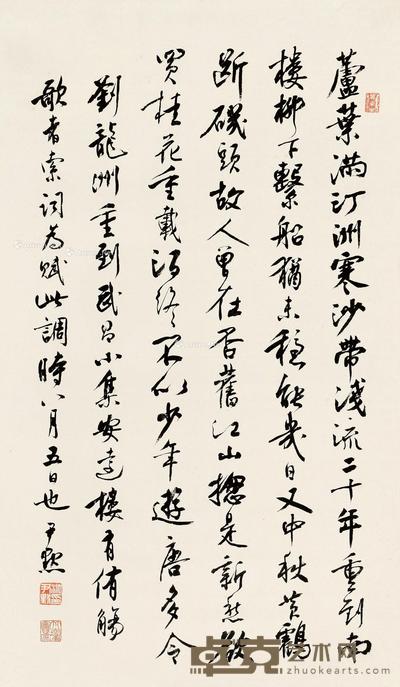 蘆葉滿汀洲寒沙帶淺流二十年重到南
樓柳下繫船猶未穩能幾日又中秋黃鶴
斷磯頭故人曾在否舊江山揔是新愁欲
買桂花重載酒終不似少年遊唐多令
劉龍洲重到武昌小集安遠樓有侑觴
歌者索詞為賦此調時八月五日也尹默
卓克艺术网
www.zhuokearts.com